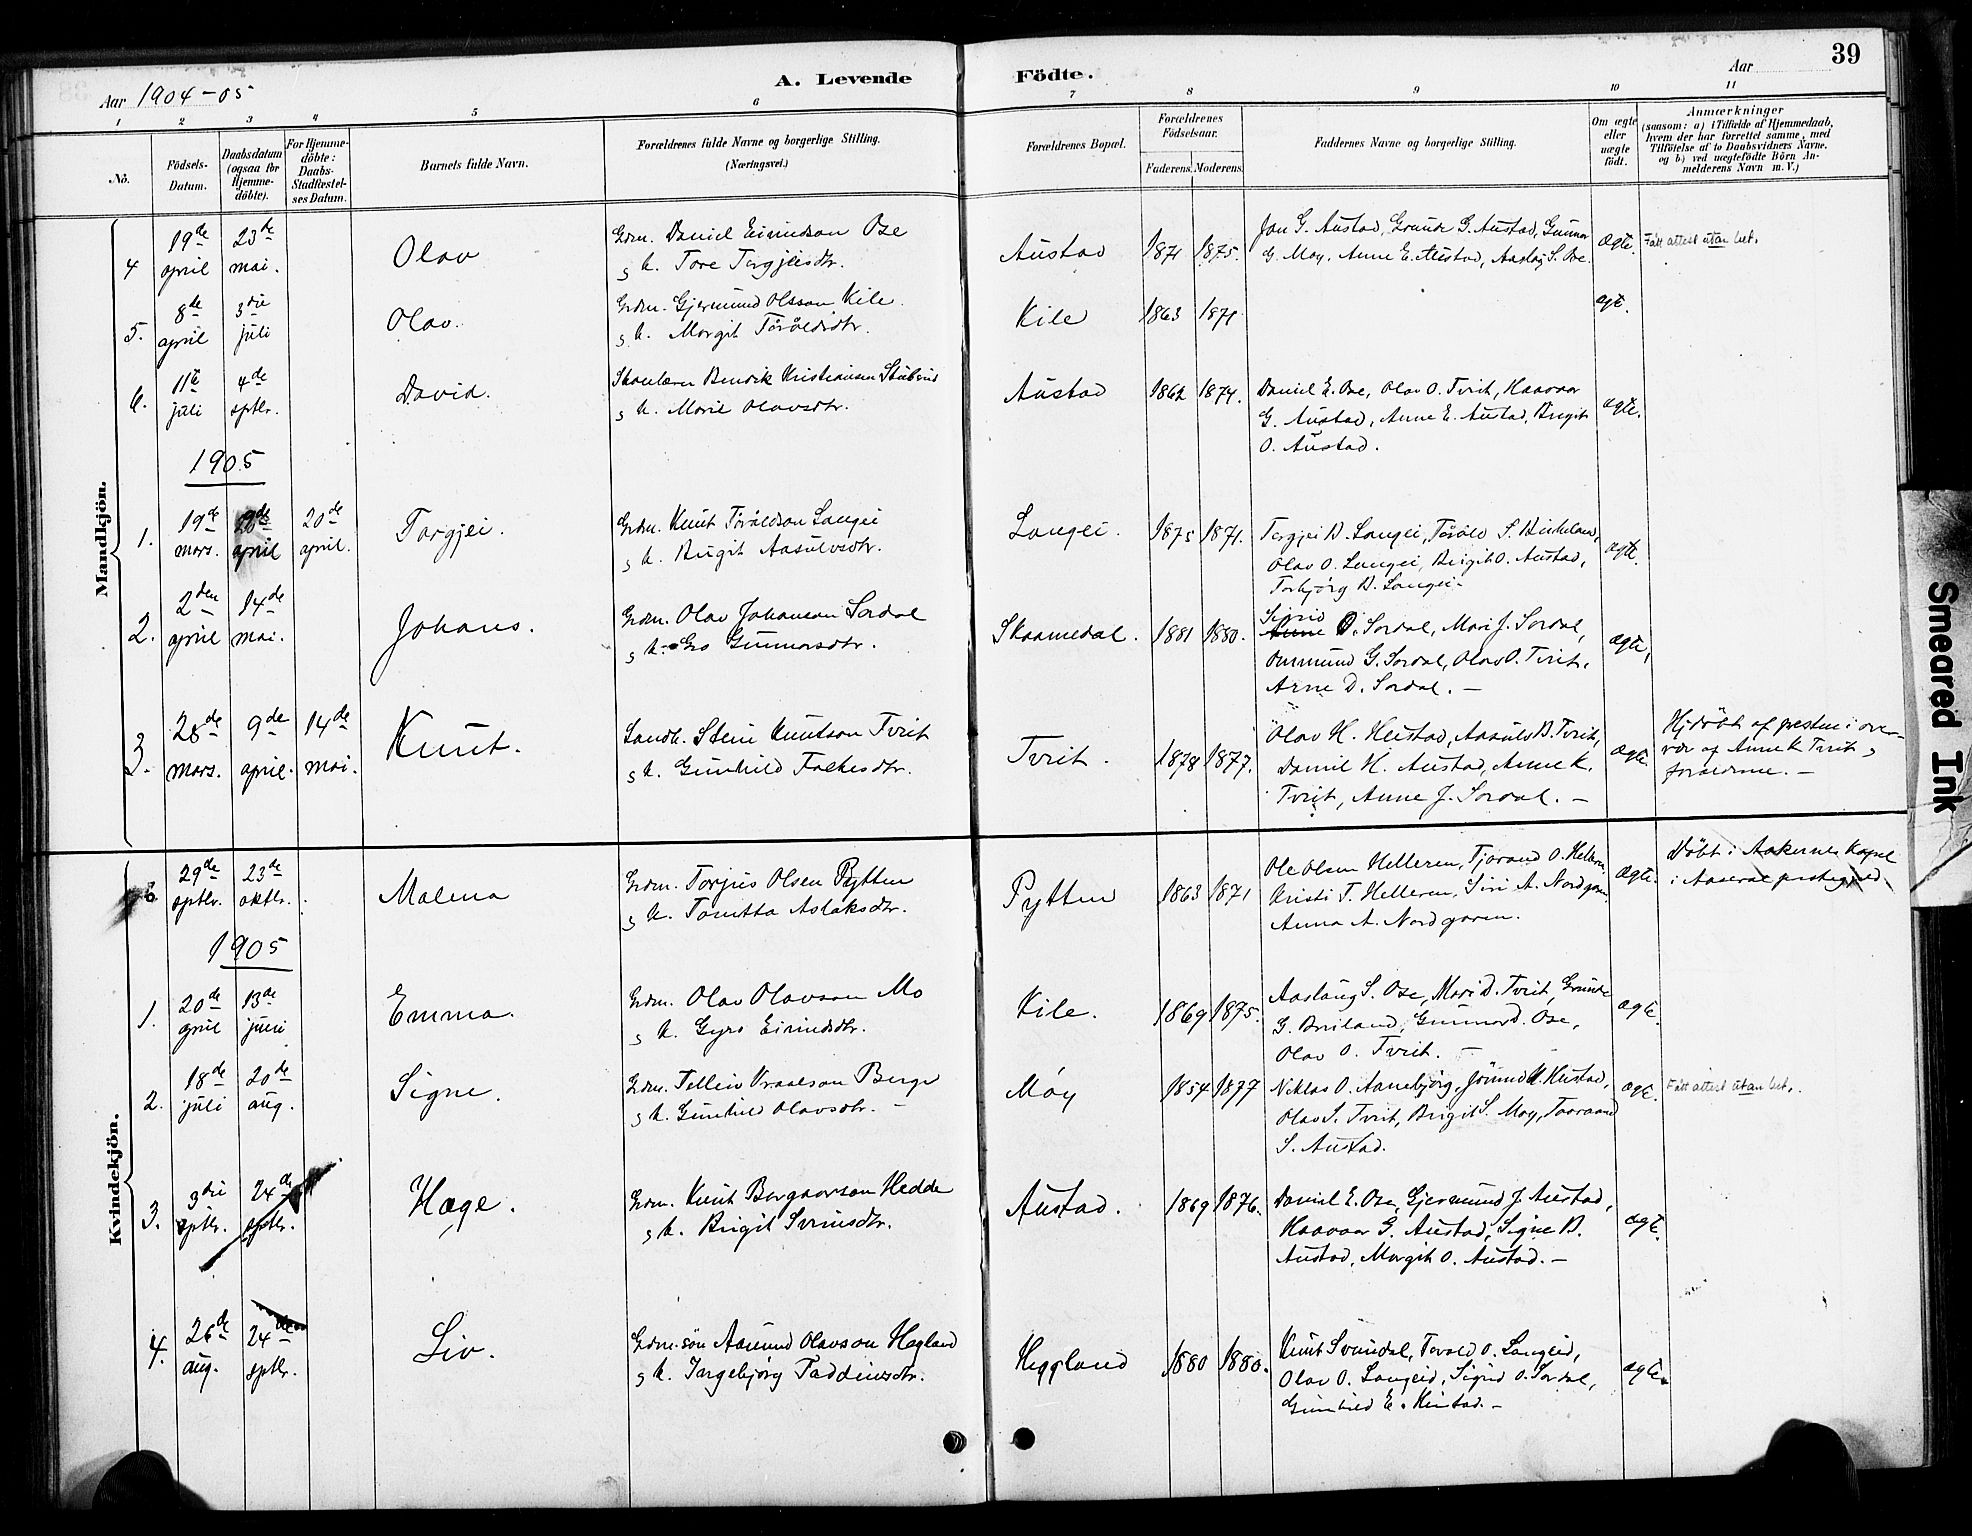 39
Aar 1904-05
A. Levende Födte.
Aar
1 2 3 4 5 6 7 8 9 10 11
No.
Födsels-Datum.
Daabsdatum (ogsaa for Hjemme-döbte).
For Hjemme-döbte: Daabs-Stadfæstel-ses Datum.
Barnets fulde Navn.
Forældrenes fulde Navne og borgerlige Stilling.
(Næringsvei.)
Forældrenes Bopæl.
Forældrenes Födselsaar.
Faderens. Moderens.
Faddernes Navne og borgerlige Stilling.
Om ægte eller uægte födt.
Anmærkninger
(saasom: a) i Tilfælde af Hjemmedaab,
hvem der har forrettet samme, med
Tilföielse af to Daabsvidners Navne,
og b) ved uægtefödte Börn An-
melderens Navn m. V.)
Mandkjön.
4 19de april 23de mai. Olav
Grdm. Daniel Eivindson Ose
g k. Tore Torgjeisdtr.
Austad 1871 1875.
Jon G. Austad, Grunde G. Austad, Gunnar
G. Moy, Anne E. Austad, Aaslög S. Ose.
ægte. Fått attest utan bet.
5. 8de april 3die juli Olav.
Grdm. Gjermund Olsson Kile.
g k. Margit Töröldsdtr.
Kile 1863 1871
ægte.
6. 11te juli 4de sptbr. David.
g k. Marie Olavsdtr.
Austad 1862 1874.
Daniel E. Ose, Olav O. Tveit, Haavar
G. Austad, Anne E. Austad, Birgit
O. Austad.
ægte.
1905
1. 19de mars. april 20de april. Torgjei.
Grdm. Knut Töröldson Langei
g k. Birgit Aasulvsdtr.
Langei. 1875 1871.
Torgjei D. Langei, Töröld S. Birkeland,
Olav O. Langei, Birgit O. Austad,
Torbjörg D. Langei.
ægte.
2. 2den april 14de mai. Johans.
Grdm. Olav Johanson Sordal
g k. Gro Gunnarsdtr.
Skaamedal. 1881 1880.
Sigrid
Anne O. Sordal, Mari J. Sordal,
Ommund G. Sordal, Olav O. Tveit,
Arne D. Sordal. —
ægte,
3. 28de mars. 9de april. 14de mai. Knut.
Landh. Stein Knutson Tveit
g k. Gunhild Folkesdtr.
Tveit. 1878 1877.
Olav H. Heistad, Aasulv B. Tveit,
Daniel H. Austad, Anne K.
Tveit, Anne J. Sordal. —
ægte.
Hjdöbt af presten i over-
vær af Anne K Tveit og
forældrene. —
Kvindekjön.
29de sptbr. 23de oktbr. Malena
Grdm. Torjus Olsen Pytten
g k. Tomitta Aslaksdtr.
Pytten 1863 1871
Ole Olsen Helleren, Tjorand O. Helleren
Kristi T. Helleren, Siri A. Nordgaren
Anna A. Nordgaren.
ægte.
Döbt i Aakernes kapel
i Aaseral prstegjeld.
1905
1. 20de april 13de juni Emma.
Grdm. Olav Olavson Mo
g k. Gyro Eivindsdtr.
Kile. 1869 1875.
Aaslaug S. Ose, Mari D. Tveit, Grunde
G. Breiland, Gunnar D. Ose,
Olav O. Tveit. —
ægte.
2. 18de juli 20de aug. Signe.
Grdm. Telleiv Vraalson Berge
g k. Gunhild Olavsdtr. —
Möy 1854 1877
Neklas O. Aanebjörg, Jörund K. Heistad,
Olav S. Tveit, Birgit S. Moy, Taaraand
S. Austad.
ægte. Fått attest utan bet.
3. 3die sptbr. 24de sptbr. Hæge.
Grdm. Knut Borgaarson Hedde
g k. Birgit Sveinsdtr.
Austad. 1869 1876.
Daniel E. Ose, Gjermund J. Austad,
Haavar G. Austad, Signe B.
Austad, Margit O. Austad. —
ægte.
4. 26de aug. 24de sptbr. Liv.
Grdm.sön Aamund Olavson Hegland
g k. Ingebjörg Taddeusdtr.
Heggland 1880 1880.
Knut Sveindal, Torold O. Langeid,
Olav O. Langeid, Sigrid O. Sordal,
Gunhild E. Heistad. —
ægte.
Smeared Ink